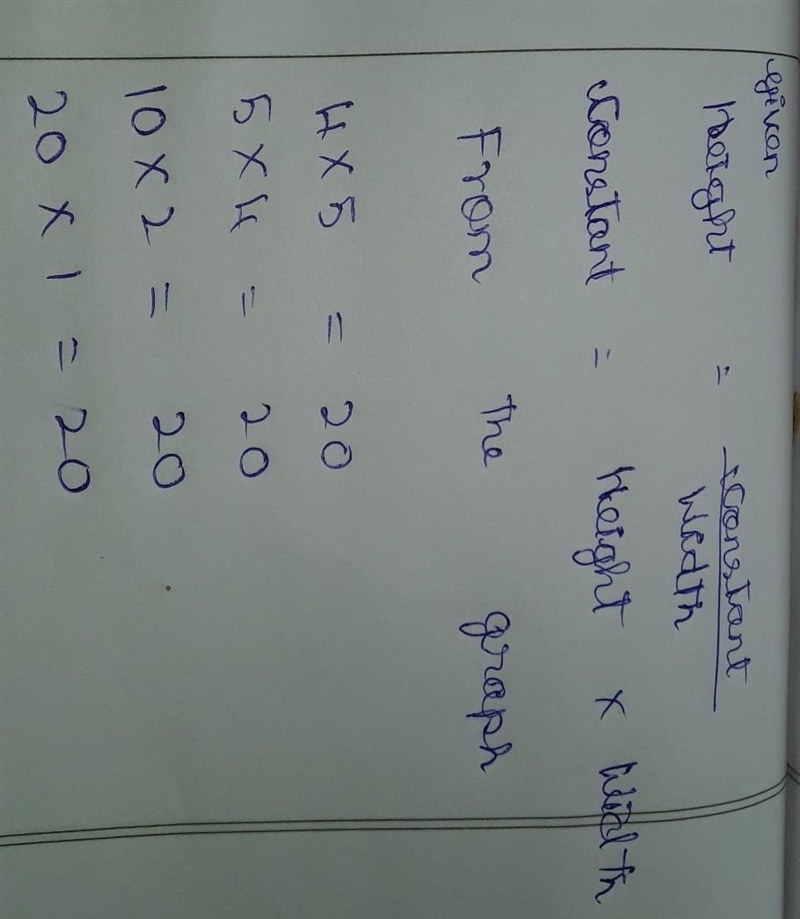 Given
Height = Constant
Width
Constant = Height × Width
From the graph
4 × 5 = 20
5 × 4 = 20
10 × 2 = 20
20 × 1 = 20